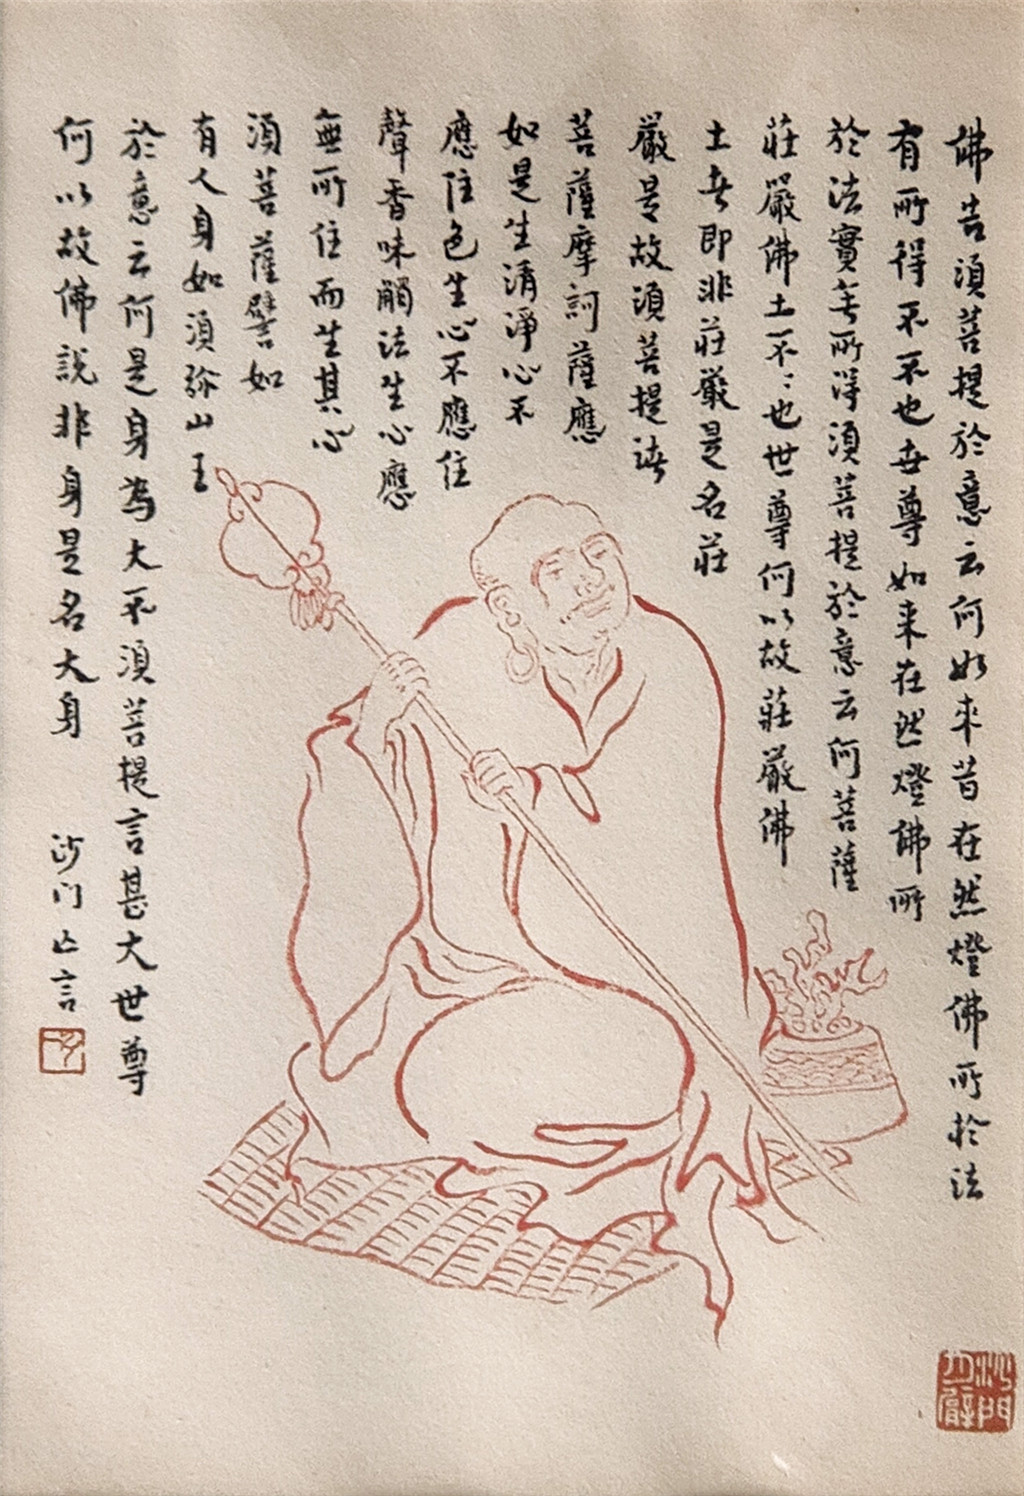 佛告須菩提於意云何如來昔在然燈佛所於法
有所得不不也世尊如来在然燈佛所
於法實无所得須菩提於意云何菩薩
莊嚴佛土不不也世尊何以故莊嚴佛
土者即非莊嚴是名莊
嚴是故須菩提諸
菩薩摩訶薩應
如是生清淨心不
應住色生心不應住
聲香味觸法生心應
無所住而生其心
須菩薩譬如
有人身如須弥山王
於意云何是身為大不須菩提言甚大世尊
何以故佛説非身是名大身
沙门 言
沙門